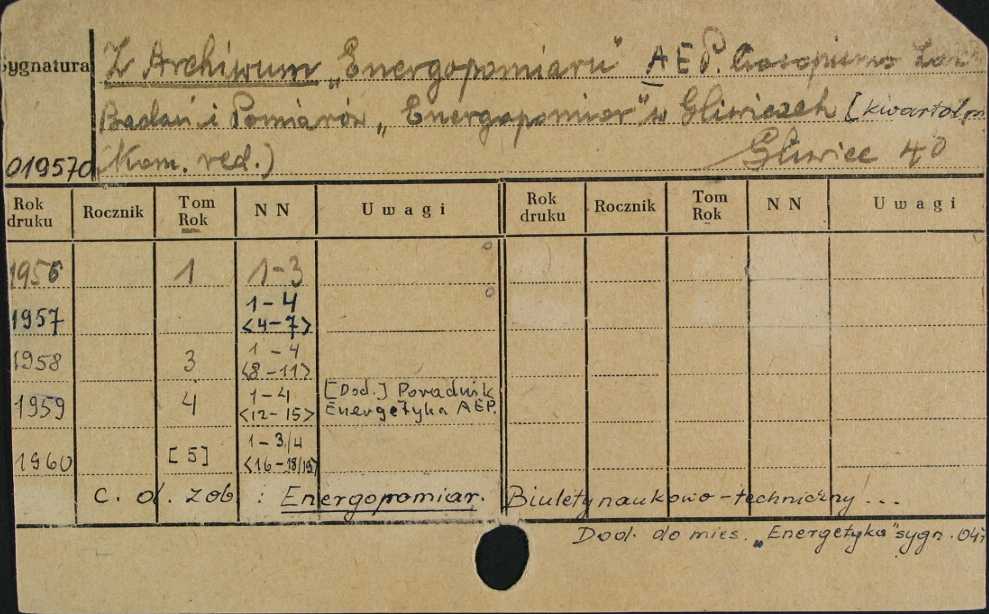 Sygnatura Z Archiwum „Energopomiaru" AEP. Czasopismo Zakł.
Badań i Pomiarów „Energopomiar" w Gliwicach [kwartaln
019570 (Kom. red.) Gliwice 40
Rok druku Rocznik Tom Rok NN Uwagi Rok druku Rocznik Tom Rok NN Uwagi
1956 1 1-3
1957 1-4 <4-7>
1958 3 1-4 <8-11>
1959 4 1-4 <12-15> [Dod.] Poradnik Energetyka AEP.
1960 [5] 1-3/4 <16-18/19>
c. d. zob : Energopomiar. Biulety naukowo-techniczny...
Dod. do mies. „Energetyka" sygn. 04